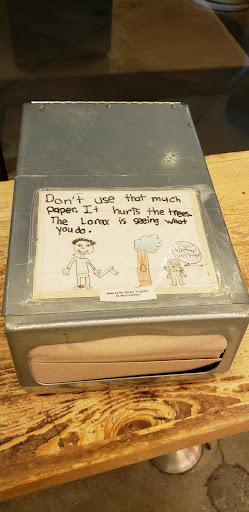 Don't use that much
paper. It hurts the trees.
The Lorax is seeing what
you do.